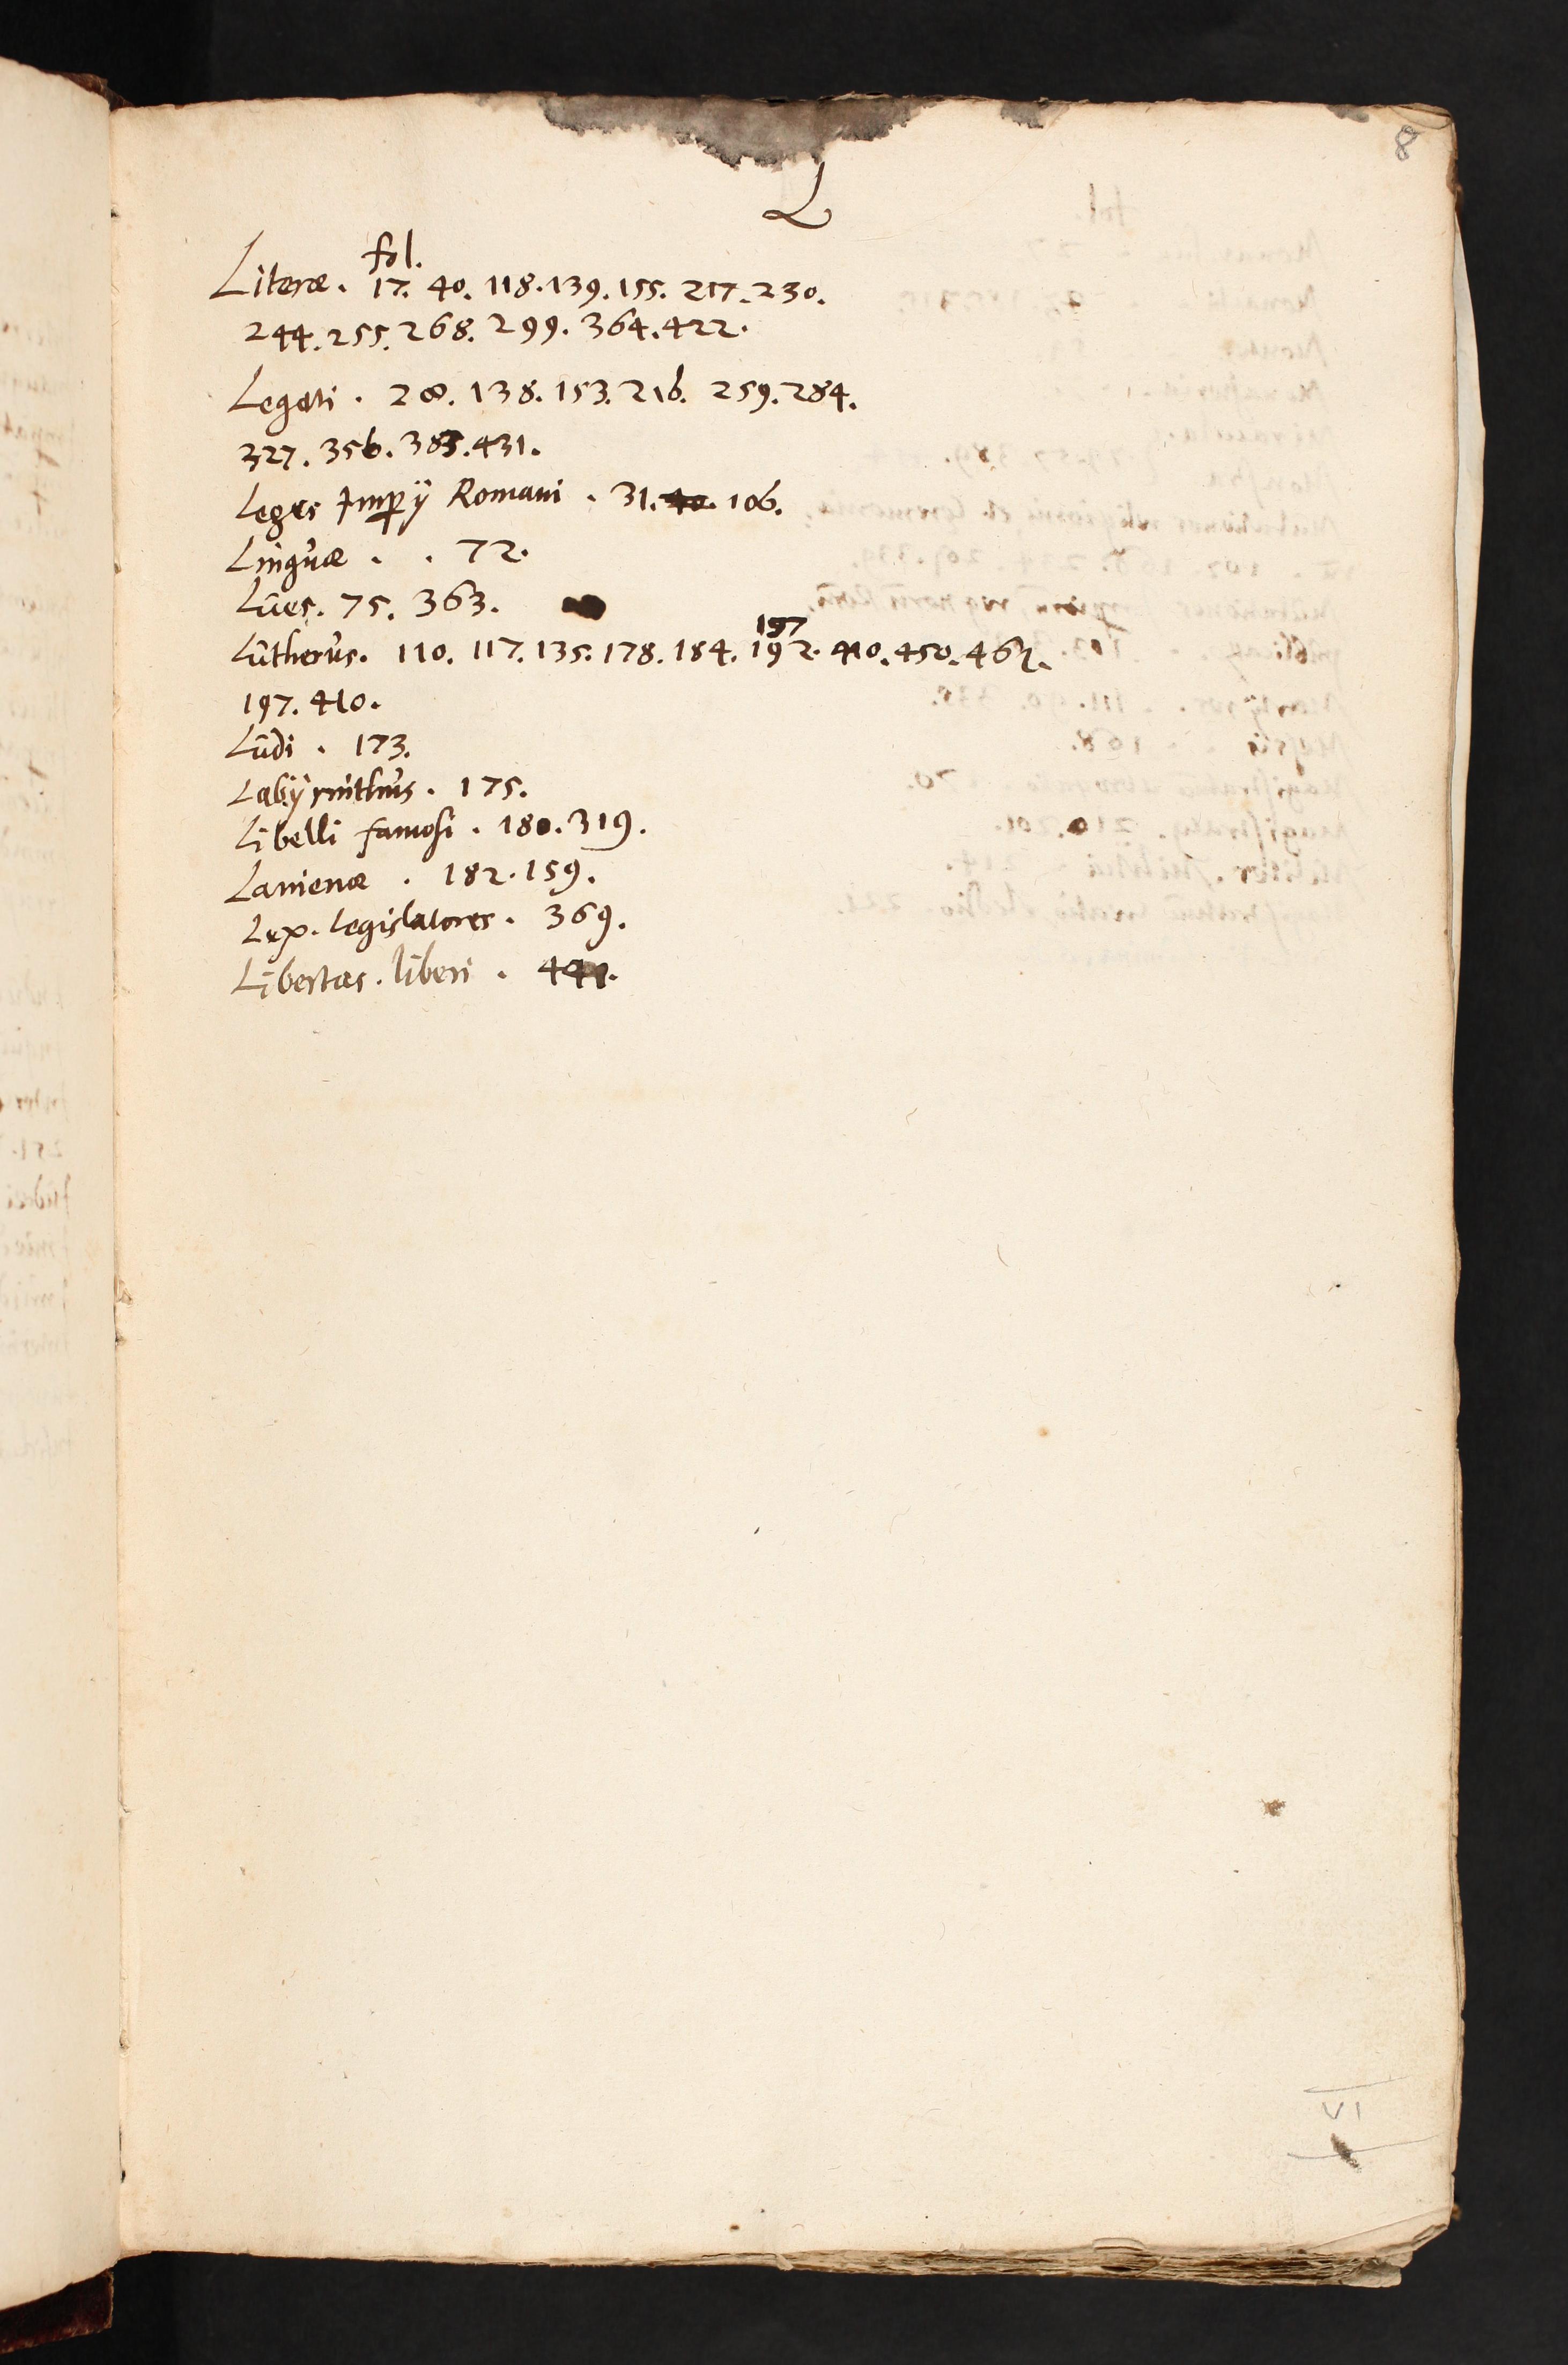 8
L
fol.
Literæ . 17. 40. 118. 139. 155. 217. 230.
244. 255. 268. 299. 364. 422.
Legati . 28. 138. 153. 216. 259. 284.
327. 356. 383. 431.
Leges Imꝑij Romani . 31. 40. 106.
Linguæ . . 72.
Lûes. 75. 363.
197
Lûtherûs. 110. 117. 135. 178. 184. 192. 410. 450. 462.
197. 410.
Lûdi . 173.
Labÿrinthus . 175.
Libelli famosi . 180. 319.
Lanienæ . 182. 159.
Lex. Legislatores . 369.
Libertas. liberi .
VI